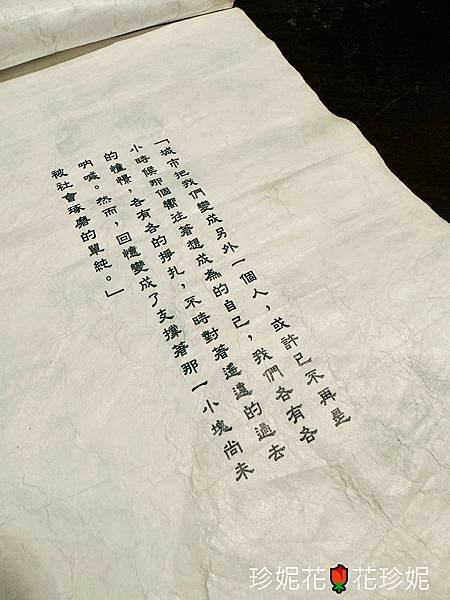 「城市把我們變成另外一個人，或許已不再是
小時候那個嚮往著想成為的自己，我們各有各
的憧憬，各有各的掙扎，不時對著遙遠的過去
吶喊。然而，回憶變成了支撐著那一小塊尚未
被社會琢磨的單純。」
珍妮花🌹花珍妮